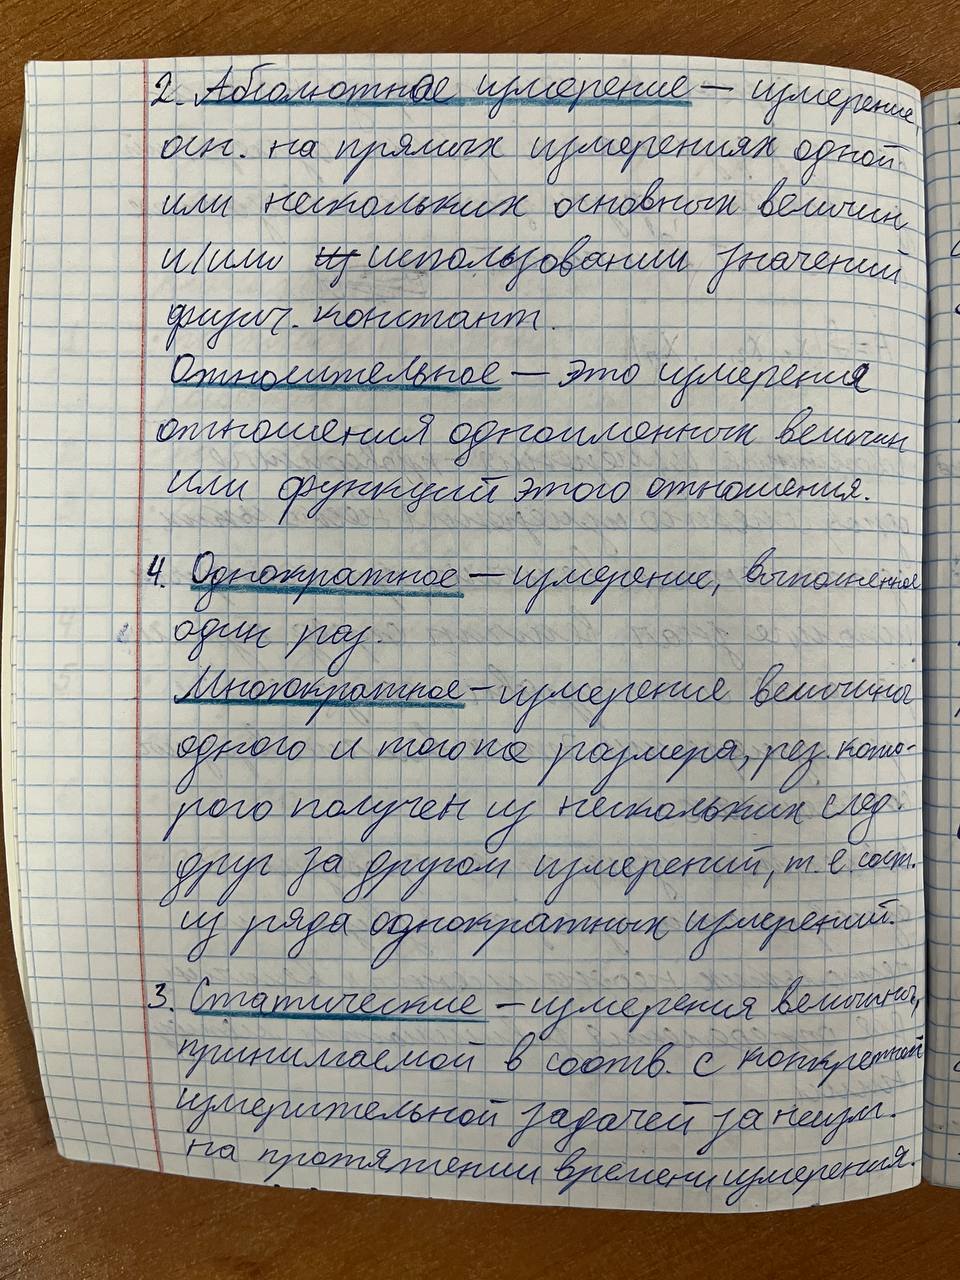 2. Абсолютное измерение — измерение,
осн. на прямых измерениях одной
или нескольких основных величин
и/или использовании значений
физич. констант.
Относительное — это измерение
отношения одноименных величин
или функций этого отношения.
4. Однократное — измерение, выполненное
один раз.
Многократное – измерение величины
одного и того же размера, рез. кото-
рого получен из нескольких след.
друг за другом измерений, т.е. сост.
из ряда однократных измерений.
3. Статические – измерения величины,
принимаемой в соотв. с конкретной
измерительной задачей за неизм.
на протяжении времени измерения.